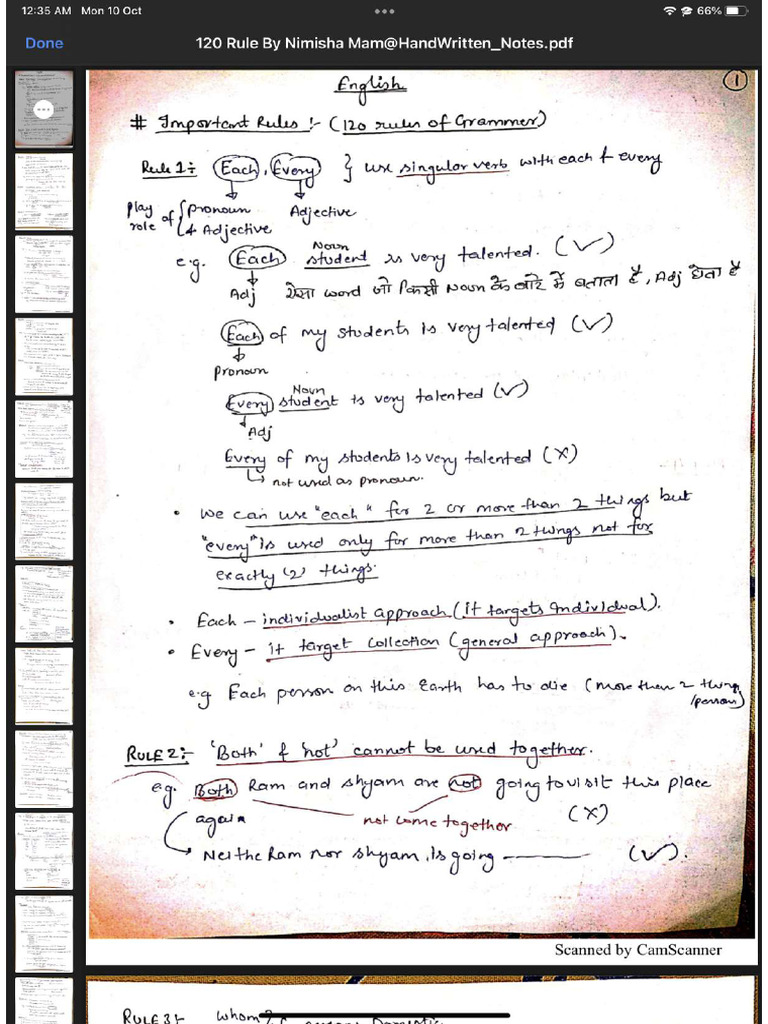 12:35 AM Mon 10 Oct
66%
Done
120 Rule By Nimisha Mam@HandWritten_Notes.pdf
English
1
# Important Rules :- (120 rules of Grammer)
Rule 1 :- Each, Every } use singulor verb with each & every
Play role of { Pronoun & Adjective
Adjective
Noun
e.g. Each student is very talented. (✓)
Adj ऐसा word जो किसी Noun के बारे में बताता है, Adj होता है
Each of my students is very talented (✓)
Pronoun
Noun
Every student is very talented (✓)
Adj
Every of my students is very talented (X)
not used as pronoun.
• We can use "each" for 2 or more than 2 things but
"every" is used only for more than 2 things not for
exactly (2) things.
• Each – individualist approach (it targets individual).
• Every – it target collection (general approach).
e.g Each person on this Earth has to die (more than 2 thing
/person)
RULE 2:- 'Both' & 'not' cannot be used together.
eg. Both Ram and Shyam are not going to visit this place
again
not come together
(X)
Neithe Ram nor Shyam, is going ——— (✓).
Scanned by CamScanner
RULE 3:- whom